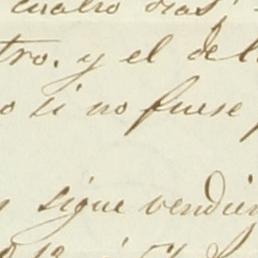 cuatro dias,
tro. y el de l
o si no fuese
sigue vendien